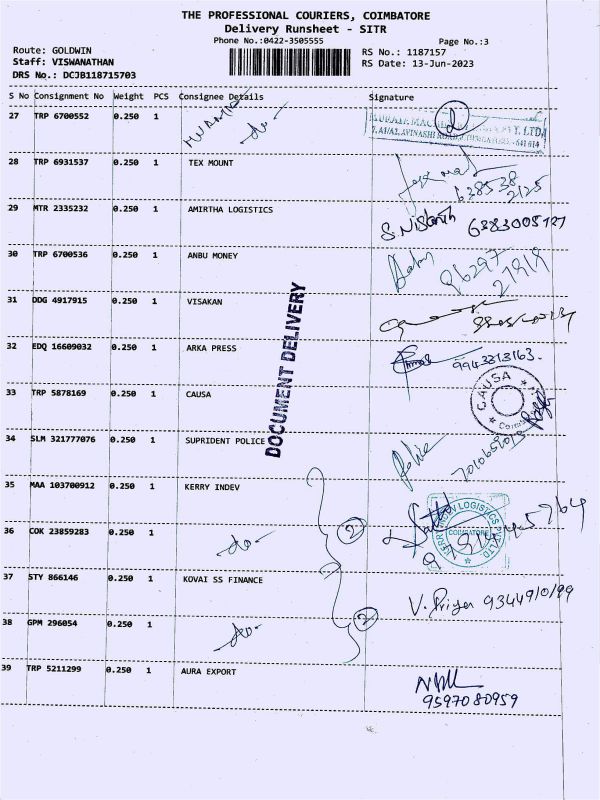 THE PROFESSIONAL COURIERS, COIMBATORE
Delivery Runsheet - SITR
Phone No.:0422-3505555 Page No.:3
Route: GOLDWIN RS No.: 1187157
Staff: VISWANATHAN RS Date: 13-Jun-2023
DRS No.: DCJB118715703
S No Consignment No Weight PCS Consignee Details Signature
27 TRP 6700552 0.250 1 -do- 2
28 TRP 6931537 0.250 1 TEX MOUNT
638538
2125
29 MTR 2335232 0.250 1 AMIRTHA LOGISTICS
30 TRP 6700536 0.250 1 ANBU MONEY
96297
31 DDG 4917915 0.250 1 VISAKAN
DOCUMENT DELIVERY
32 EDQ 16609032 0.250 1 ARKA PRESS
9943313163.
33 TRP 5878169 0.250 1 CAUSA
CAUSA
34 SLM 321777076 0.250 1 SUPRIDENT POLICE
35 MAA 103700912 0.250 1 KERRY INDEV
KERRY INDEV LOGISTICS PVT LTD
COIMBATORE
36 COK 23859283 0.250 1 -do- 2
37 STY 866146 0.250 1 KOVAI SS FINANCE
V. Priya 9344910199
38 GPM 296054 0.250 1 -do- 2
39 TRP 5211299 0.250 1 AURA EXPORT
9597080959